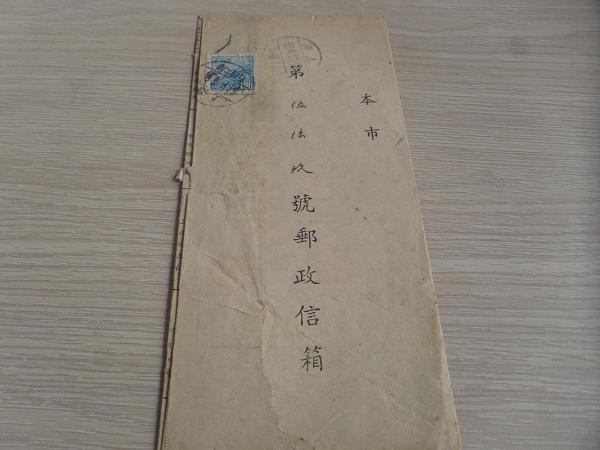 本市
第伍陆玖號郵政信箱